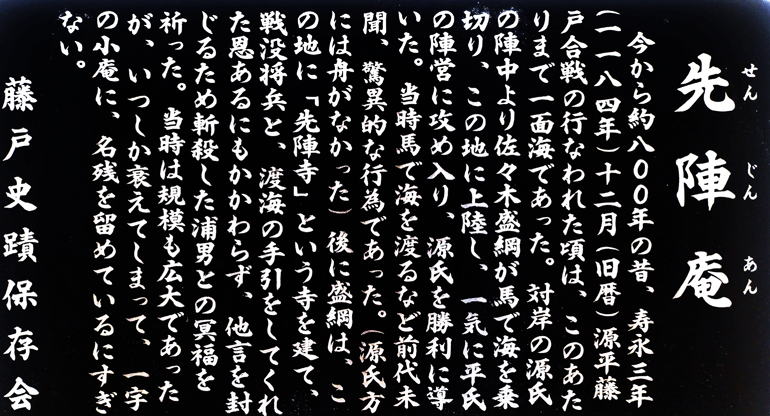 先陣庵
せんじんあん
今から約八〇〇年の昔、寿永三年
(一一八四年)十二月(旧暦)源平藤
戸合戦の行なわれた頃は、このあた
りまで一面海であった。対岸の源氏
の陣中より佐々木盛綱が馬で海を乗
切り、この地に上陸し、一気に平氏
の陣営に攻め入り、源氏を勝利に導
いた。当時馬で海を渡るなど前代未
聞、驚異的な行為であった。(源氏方
には舟がなかった)後に盛綱は、こ
の地に「先陣寺」という寺を建て、
戦没将兵と、渡海の手引をしてくれ
た恩あるにもかかわらず、他言を封
じるため斬殺した浦男との冥福を
祈った。当時は規模も広大であった
が、いつしか衰えてしまって、一字
の小庵に、名残を留めているにすぎ
ない。
藤戸史蹟保存会